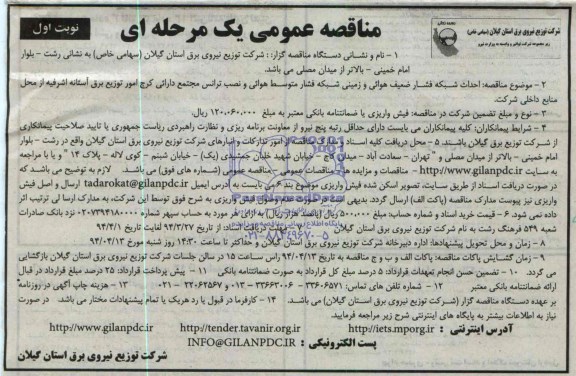 شرکت توزیع نیروی برق استان گیلان (سهامی خاص)
مناقصه عمومی یک مرحله ای
نوبت اول
۱ - نام و نشانی دستگاه مناقصه گزار: : شرکت توزیع نیروی برق استان گیلان (سهامی خاص) به نشانی رشت - بلوار
امام خمینی - بالاتر از میدان مصلی می باشد.
۲ - موضوع مناقصه: احداث شبکه فشار ضعیف هوائی و زمینی شبکه فشار متوسط هوائی و نصب ترانس مجتمع دارائی کرج امور توزیع برق آستانه اشرفیه از محل
منابع داخلی شرکت.
۳ - نوع و مبلغ تضمین شرکت در مناقصه: فیش واریزی یا ضمانتنامه بانکی معتبر به مبلغ ۱۲۰،۰۶۰،۰۰۰ ریال.
۴ - شرایط پیمانکاران: کلیه پیمانکاران می بایست دارای حداقل رتبه پنج نیرو از معاونت برنامه ریزی و نظارت راهبردی ریاست جمهوری یا تایید صلاحیت پیمانکاری
از شرکت توزیع برق گیلان باشند. ۵ - محل دریافت کلیه اسناد و مدارک مناقصه: امور تدارکات و انبارهای شرکت توزیع نیروی برق استان گیلان واقع در رشت - بلوار
امام خمینی - بالاتر از میدان مصلی و " تهران - سعادت آباد - میدان کاج - خیابان شهید خلیل حسینی (یک) - خیابان شبنم - کوی لاله - پلاک ۱۴ " و یا با مراجعه
به سایت http://www.gilanpdc.ir - مناقصات و مزایده ها - مناقصات عمومی - مناقصه عمومی (شماره های فوق) می باشد. لازم به توضیح می باشد که
در صورت دریافت اسناد از طریق سایت، تصویر اسکن شده فیش واریزی موضوع بند ۶ می بایست به آدرس ایمیل tadarokat@gilanpdc.ir ارسال و اصل فیش
واریزی نیز پیوست مدارک مناقصه (پاکت الف) ارسال گردد. بدیهی است در صورت عدم وصول فیش واریزی به شرح فوق توسط این شرکت، به مدارک ارسالی ترتیب اثر
داده نمی شود. ۶ - قیمت خرید اسناد و شماره حساب: مبلغ ۵۰۰،۰۰۰ ریال (پانصد هزار ریال) به ازای هر مورد به حساب سپهر شماره ۰۲۰۷۳۹۴۱۸۰۰۰ نزد بانک صادرات
شعبه ۵۴۹ فرهنگ رشت به نام شرکت توزیع نیروی برق استان گیلان ۷ - مهلت دریافت اسناد: از تاریخ ۹۴/۳/۲۷ لغایت تاریخ ۹۴/۴/۱
۸ - زمان و محل تحویل پیشنهادها: اداره دبیرخانه شرکت توزیع نیروی برق استان گیلان و حداکثر تا ساعت ۱۴:۳۰ روز شنبه مورخ ۹۴/۰۴/۱۳
۹ - زمان گشایش پاکات مناقصه: پاکات الف و ب و ج مناقصه به تاریخ ۹۴/۰۴/۱۳ راس ساعت ۱۵ در سالن جلسات شرکت توزیع نیروی برق استان گیلان بازگشایی
می گردد. ۱۰ - تضمین حسن انجام تعهدات قرارداد: ۵ درصد مبلغ کل قرارداد به صورت ضمانتنامه بانکی ۱۱ - پیش پرداخت قرارداد: ۲۵ درصد مبلغ قرارداد در قبال
ارائه ضمانتنامه بانکی معتبر ۱۲ - شماره تلفن های تماس: ۳۳۶۰۶۵۷۱ - ۳۳۶۶۳۰۰۶ - ۰۱۳ و ۲۲۰۶۲۵۶۷ - ۰۲۱ ۱۳ - هزینه چاپ آگهی در روزنامه
بر عهده دستگاه مناقصه گزار (شرکت توزیع نیروی برق استان گیلان) می باشد. ۱۴ - کارفرما در قبول یا رد هریک یا تمام پیشنهادات مختار می باشد. در صورت
نیاز به اطلاعات بیشتر به پایگاه های اینترنتی شرح زیر مراجعه فرمایید
آدرس اینترنتی : http://iets.mporg.ir http://tender.tavanir.org.ir http://www.gilanpdc.ir
پست الکترونیکی : INFO@GILANPDC.IR
شرکت توزیع نیروی برق استان گیلان